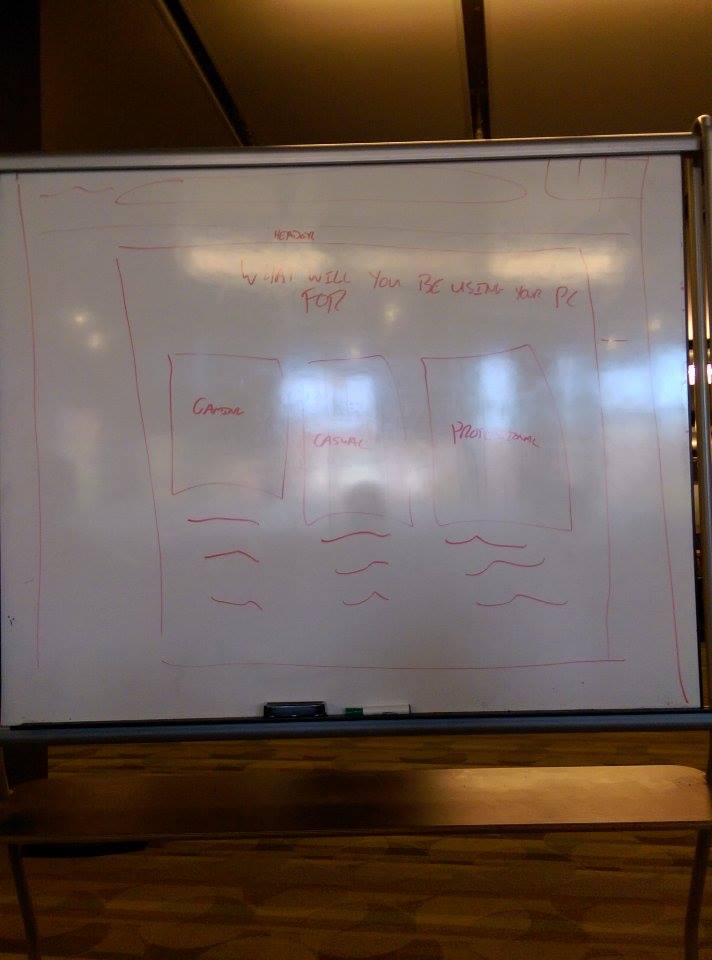 HEADER
WHAT WILL YOU BE USING YOUR PC
FOR
GAMING
CASUAL
PROFESSIONAL